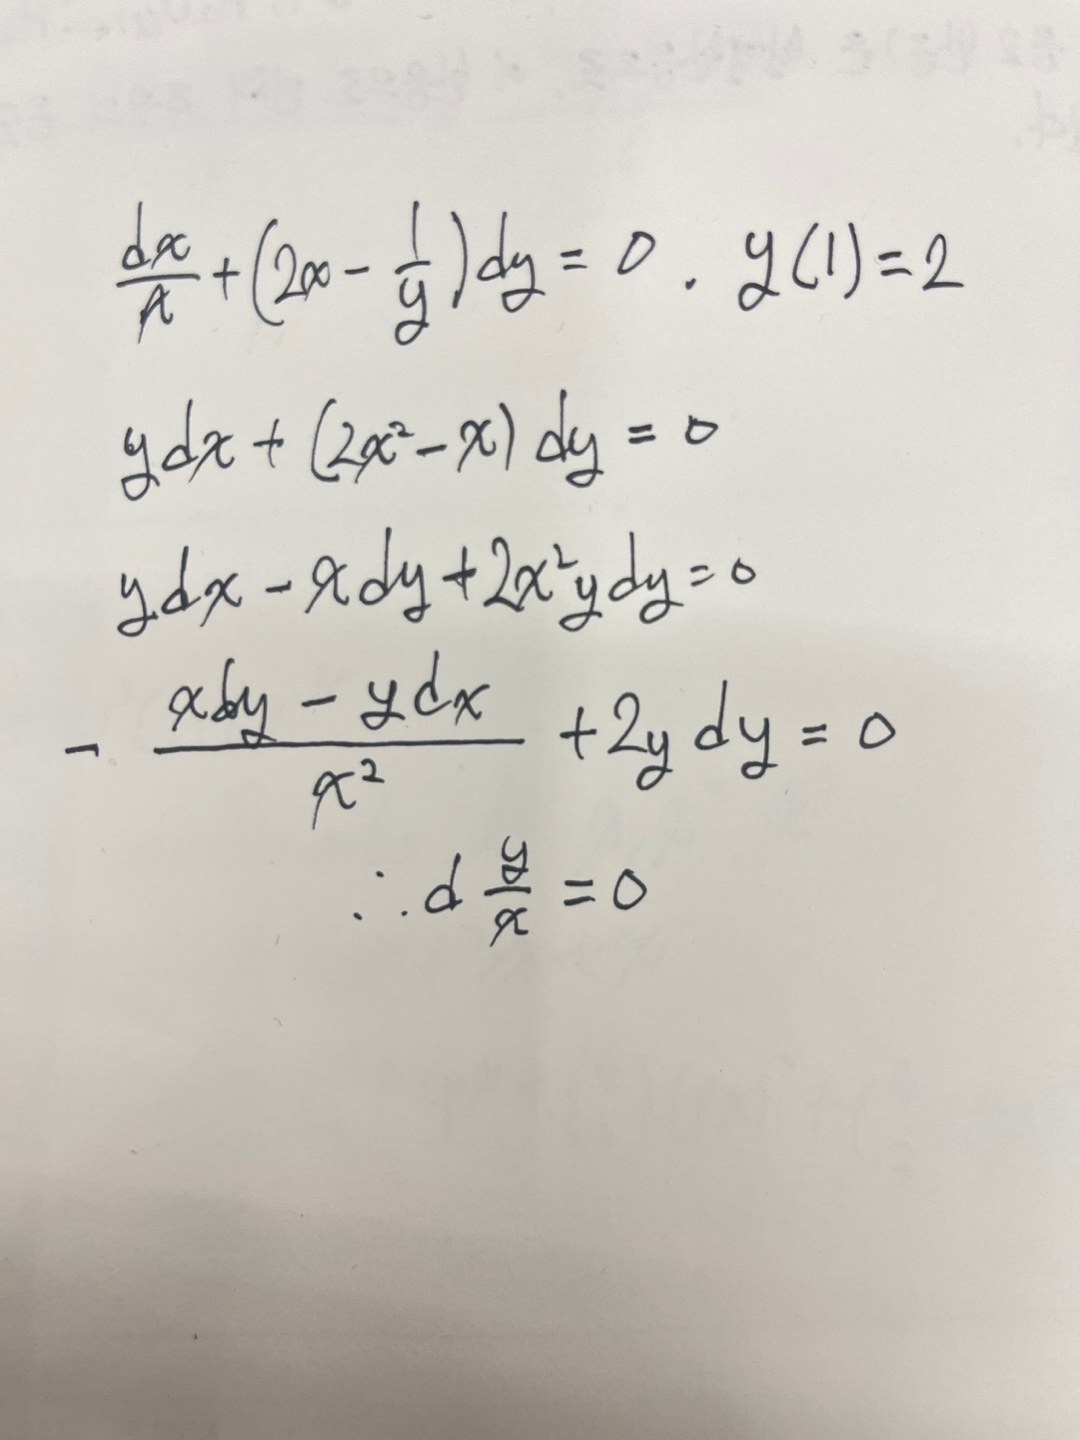 dx/x + (2x - 1/y)dy = 0 . y(1) = 2
ydx + (2x² - x) dy = 0
ydx - xdy + 2x²ydy = 0
- (xdy - ydx)/x² + 2y dy = 0
∴ d y/x = 0